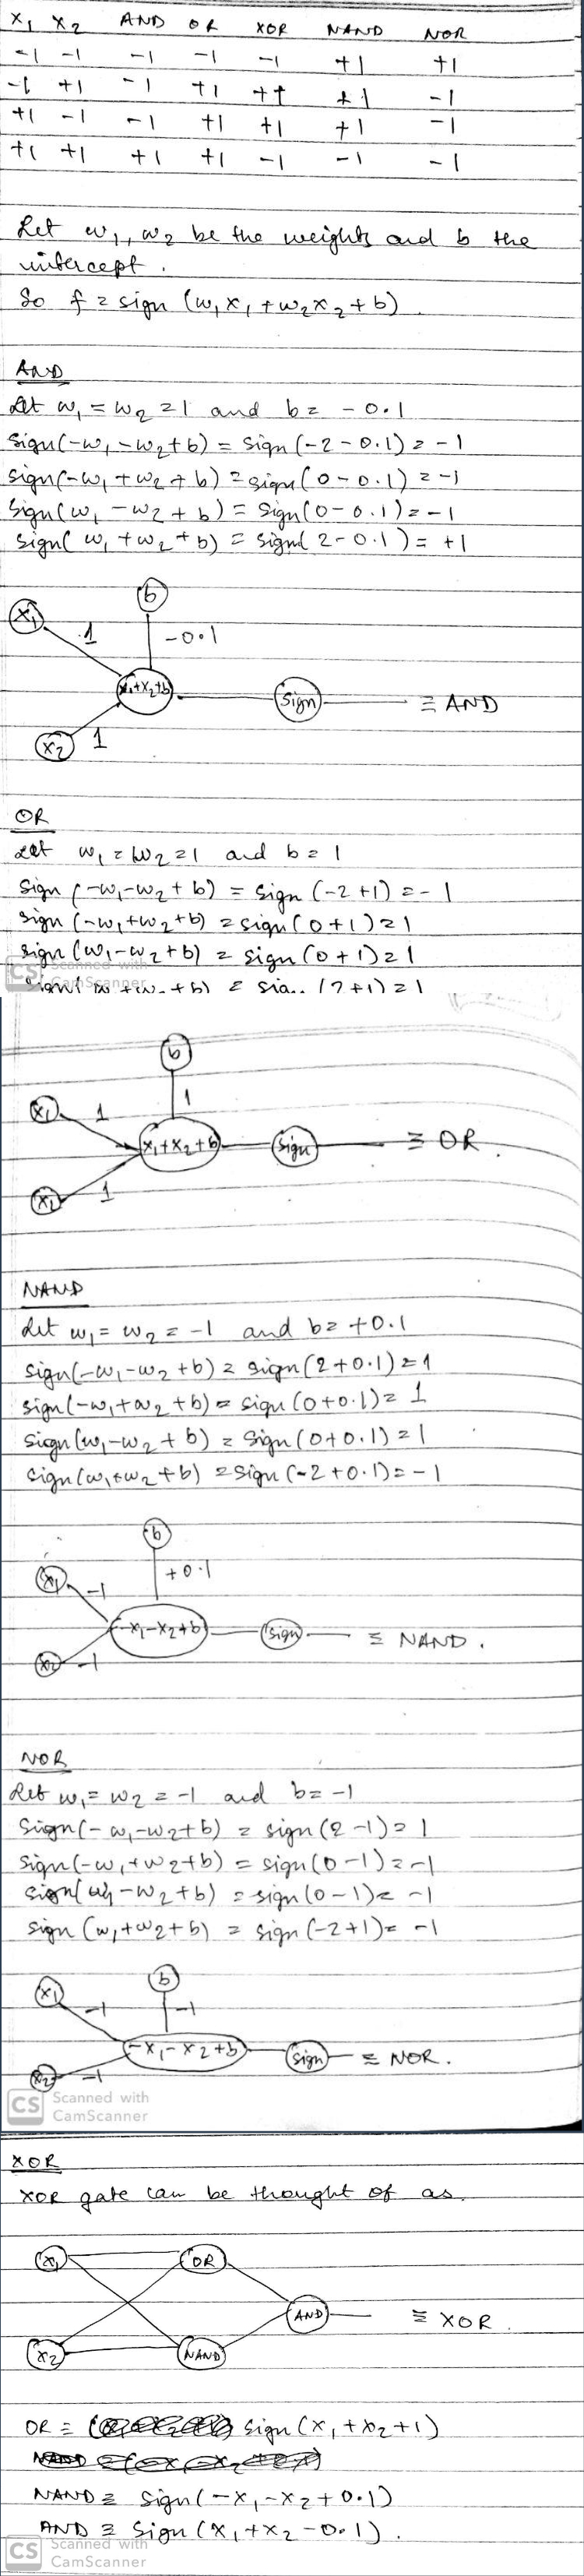 x₁ x₂ AND OR XOR NAND NOR
-1 -1 -1 -1 -1 +1 +1
-1 +1 -1 +1 +1 +1 -1
+1 -1 -1 +1 +1 +1 -1
+1 +1 +1 +1 -1 -1 -1
Let w₁, w₂ be the weights and b the
intercept.
So f = sign (w₁x₁ + w₂x₂ + b).
AND
Let w₁ = w₂ = 1 and b = -0.1
Sign(-w₁ - w₂ + b) = sign (-2 - 0.1) = -1
sign(-w₁ + w₂ + b) = sign(0 - 0.1) = -1
sign(w₁ - w₂ + b) = sign(0 - 0.1) = -1
sign(w₁ + w₂ + b) = sign(2 - 0.1) = +1
b
x₁
1
-0.1
x₁+x₂+b
sign
≡ AND
x₂
1
OR
Let w₁ = w₂ = 1 and b = 1
Sign (-w₁-w₂ + b) = sign (-2 + 1) = -1
sign (-w₁+w₂+b) = sign(0+1) = 1
sign (w₁-w₂+b) = sign (0+1) = 1
CS Scanned with
CamScanner
sign( w₁ + w₂ + b) = sign (2+1) = 1
b
x₁
1
1
x₁+x₂+b
sign
≡ OR.
x₂
1
NAND
Let w₁ = w₂ = -1 and b = +0.1
sign(-w₁-w₂+b) = sign(2+0.1) = 1
sign(-w₁+w₂+b) = sign(0+0.1) = 1
sign(w₁-w₂+b) = sign(0+0.1) = 1
sign(w₁+w₂+b) = sign(-2+0.1) = -1
b
x₁
-1
+0.1
-x₁-x₂+b
sign
≡ NAND.
x₂
-1
NOR
Let w₁ = w₂ = -1 and b = -1
Sign(-w₁-w₂+b) = sign(2-1) = 1
sign(-w₁+w₂+b) = sign(0-1) = -1
sign(w₁-w₂+b) = sign(0-1) = -1
sign (w₁+w₂+b) = sign(-2+1) = -1
x₁
b
-1
-1
-x₁-x₂+b
sign
≡ NOR.
x₂
-1
CS Scanned with
CamScanner
XOR
XOR gate can be thought of as.
x₁
OR
AND
≡ XOR.
x₂
NAND
OR ≡ sign(x₁+x₂+1)
NAND ≡ sign(-x₁-x₂+0.1)
AND ≡ sign(x₁+x₂-0.1).
CS Scanned with
CamScanner